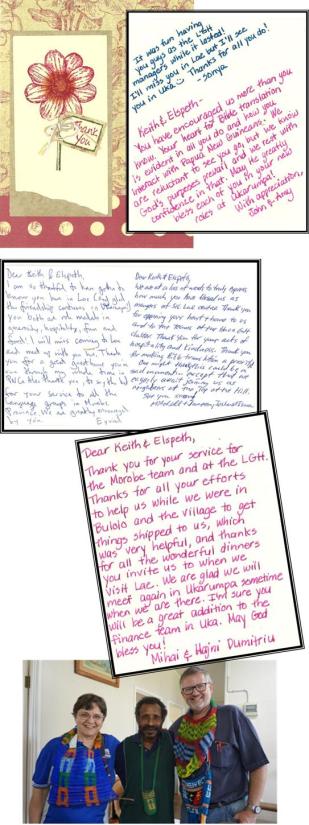 Thank
you
It was fun having
you guys as the LGH
managers while it lasted!
I'll miss you in Lae but I'll see
you in Uka. Thanks for all you do!
-Sonya
Keith & Elspeth-
You have encouraged us more than you
know. Your heart for Bible translation
is evident in all you do and how you
interact with Papua New Guineans. We
are reluctant to see you go, but we know
God's purposes prevail and we rest with
confidence in that. May He greatly
bless each of you in your new
roles at Ukarumpa!
With appreciation,
John & Amy
Dear Keith & Elspeth,
I am so thankful to have gotten to
know you here in Lae and glad
the friendship continues in Ukarumpa
you both as role models in
generosity, hospitality, fun and
food! I will miss coming to Lae
and meet up with you
for your service to
language groups in
Province. We are greatly encouraged
by you
Dear Keith & Elspeth,
We are at a loss of words to truly express
how much you have blessed us as
managers at Lae Centre. Thank you
for opening your heart & home to us
and to the teams at the
Thank you for your acts of
hospitality and kindness. Thank you
for making Bible translation a priority
this could be a
sad moment
eagerly await joining us as
neighbours at the Top of the Hill.
See you soon,
Dear Keith & Elspeth,
Thank you for your service for
the Morobe team and at the LGH.
Thanks for all your efforts
to help us while we were in
Bulolo and the village to get
things shipped to us, which
was very helpful, and thanks
for all the wonderful dinners
you invite us to when we
visit Lae. We are glad we will
meet again in Ukarumpa sometime
when we are there. I'm sure you
will be a great addition to the
finance team in Uka. May God
bless you!
Mihai & Hajni Dumitriu